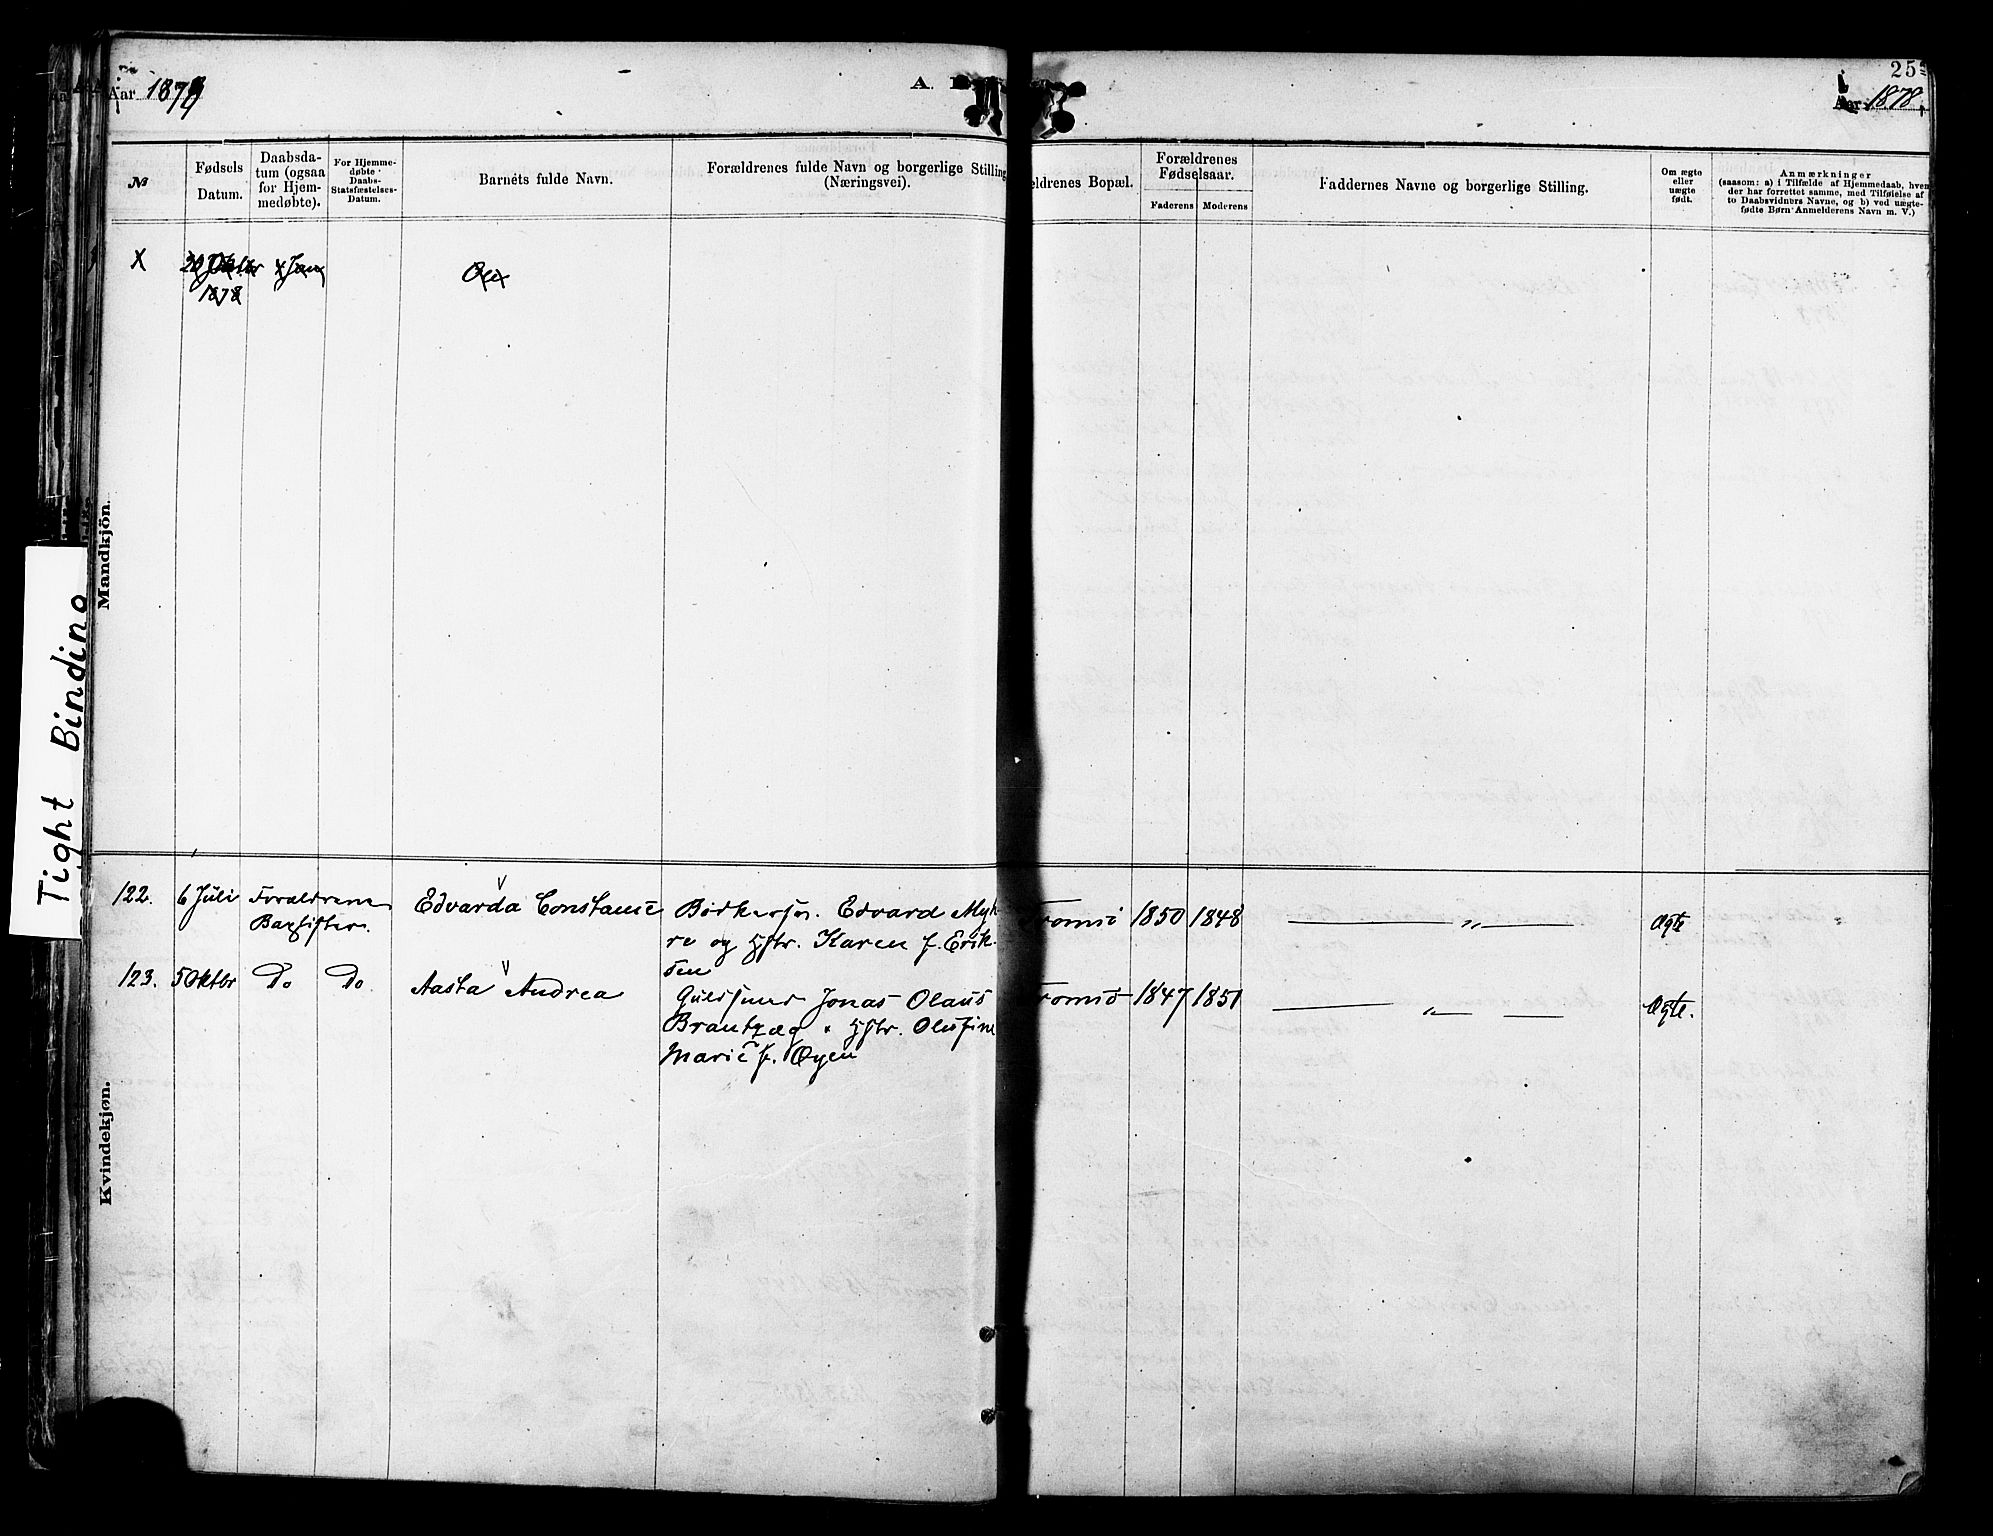 Aar 1878
A.
25
Aar 1878,
№
Fødsels
Datum.
Daabsda-
tum (ogsaa
for Hjem-
medøbte).
For Hjemme-
døbte
Daabs-
Statsfæstelses-
Datum.
Barnets fulde Navn.
Forældrenes fulde Navn og borgerlige Stilling
(Næringsvei).
ldrenes Bopæl.
Forældrenes
Fødselsaar.
Faderens Moderens
Faddernes Navne og borgerlige Stilling.
Om ægte
eller
uægte
født.
Anmærkninger
(saasom: a) i Tilfælde af Hjemmedaab, hven
der har forrettet samme, med Tilføielse af
to Daabsvidners Navne, og b) ved uægte-
fødte Børn Anmelderens Navn m. V.)
20 Oktbr
1878
Mandkjön.
Tight Binding
122. 6 Juli Forældrene Edvarda Constanse Bødkersv. Edvard Myh- Tromsø 1850 1848 — „ — Ægte
Baptister. re og Hstr. Karen f. Erik-
sen
123. 5 Oktbr Do Do Aasta Andrea Guldsmed Jonas Olaus Tromsø 1847 1851 — „ — Ægte.
Brantzæg " Hstr. Olufine
Marie f. Øyen
Kvindekjøn.